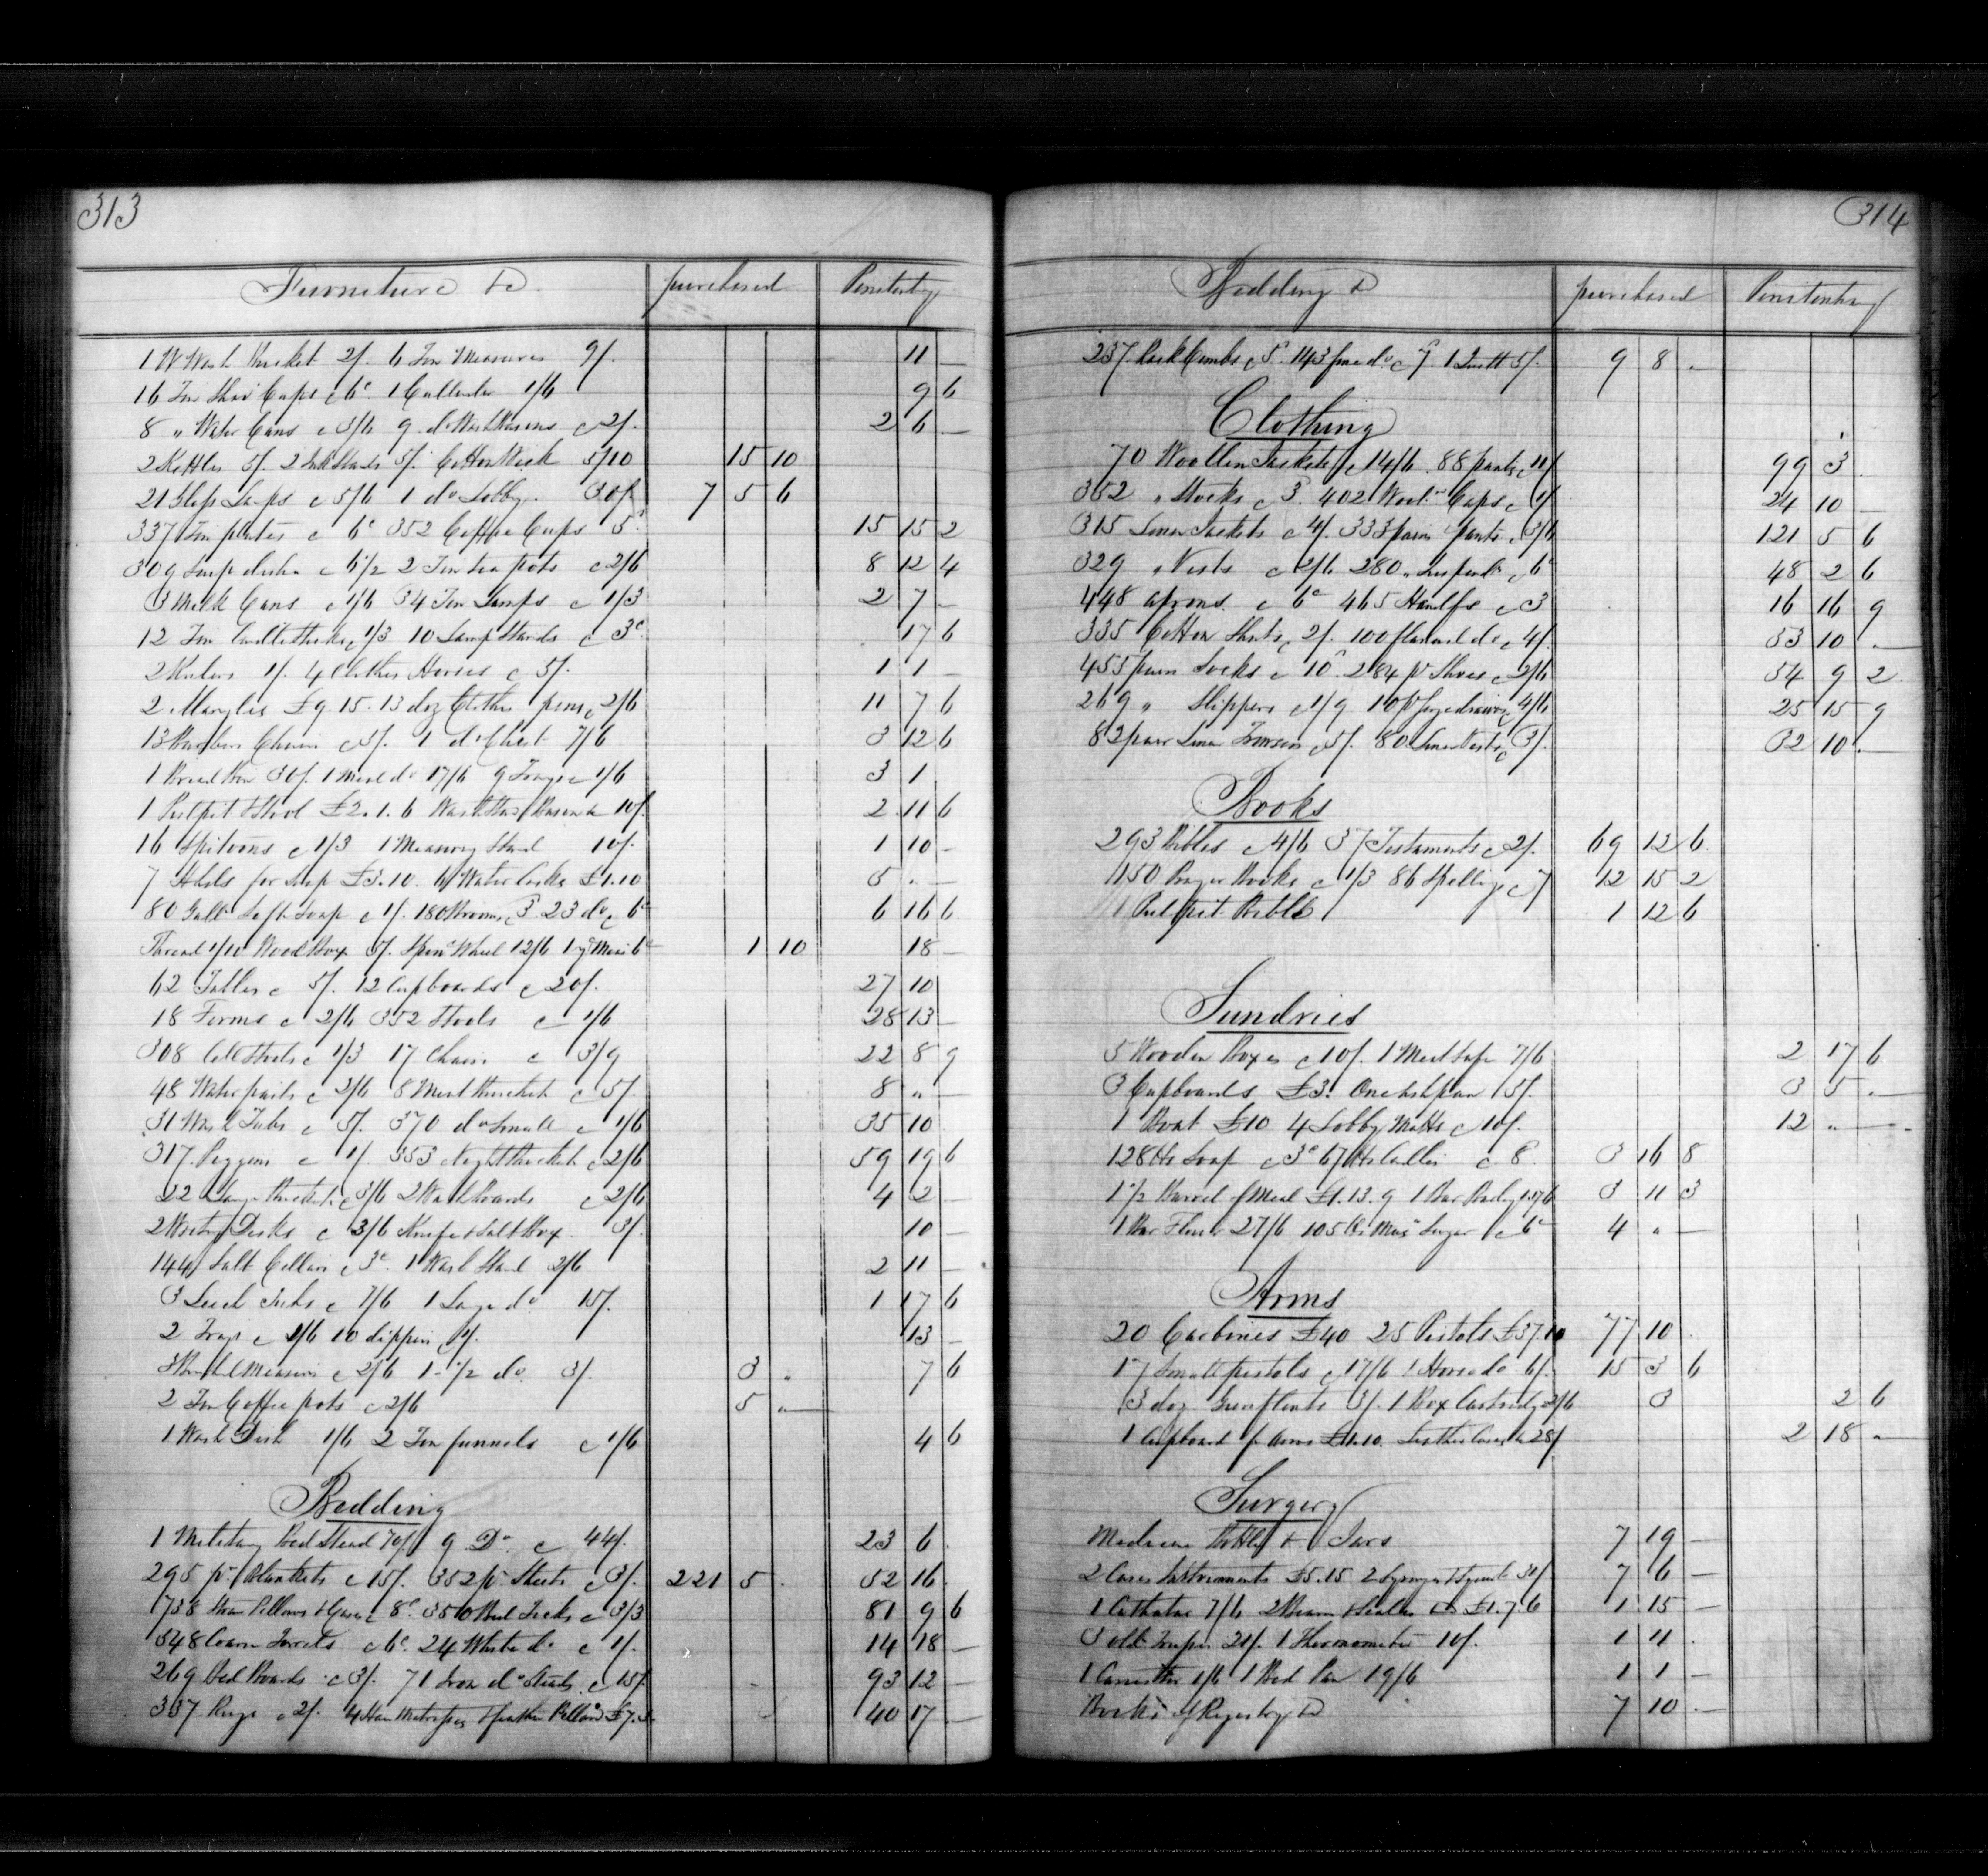 313
Furniture &c purchased Penitenty
1 W Wash Bucket 2/. 6 Tin Measures 9/. 11 —
16 Tin Shav Cups c 6c 1 Cullender 1/6 9 6
8 " Water Cans c 3/6 9 do Wash Basons c 2/. 2 6 —
2 Kettles 5/. 2 Ink Stands 5/. Cotton Wick 5/10 15 10
21 Glass Lamps c 5/6 1 do Lobby 30/. 7 5 6
337 Tin plates c 6c 352 Coffee Cups 5c 15 15 2
309 Soup dishes c 6½ 2 Tin tea pots c 2/6 8 12 4
3 Milk Cans c 1/6 34 Tin Lamps c 1/3 2 7 —
12 Tin Candlesticks c 1/3 10 Lamp Stands c 3c 17 6
2 Rulers 1/. 4 Clothes Horses c 5/. 1 1 —
2 Mangles £9.15. 13 doz Clothes pins c 2/6 11 7 6
13 Barbers Chairs c 5/. 1 do Chest 7/6 3 12 6
1 Bread Box 30/. 1 Meal do 17/6 9 Trays c 1/6 3 1
1 Pulpit & Stool £2.1.6 Wash Stand Bason &c 10/. 2 11 6
16 Spitoons c 1/3 1 Measuring Stand 10/. 1 10 —
7 Hhds for Soap £3.10. 6 Water Casks £1.10 5 " —
80 Galls Soft Soap c 1/. 180 Brooms c 3 23 do c 6c 6 16 6
Thread 1/10 Wood Box 5/. Spin Wheel 12/6 1 yd Meas 6c 1 10 18 —
62 Tables c 5/. 12 Cupboards c 20/. 27 10
18 Forms c 2/6 352 Stools c 1/6 28 13 —
308 Cell Stools c 1/3 17 Chairs c 3/9 22 8 9
48 Water pails c 2/6 8 Meat Buckets c 5/. 8 " —
31 Wash Tubs c 5/. 370 do Small c 1/6 35 10
317 Piggens c 1/. 353 Night Buckets c 2/6 59 19 6
22 Large Buckets c 3/6 2 Wash Boards c 2/6 4 2 —
2 Writing Desks c 3/6 Knife & Salt Box 3/. 10 —
144 Salt Cellars c 3c 1 Wash Stand 2/6 2 11 —
3 Leach Tubs c 7/6 1 Large do 15/. 1 17 6
2 Trays c 1/6 10 dippers c 1/. 13 —
Bushel Measures c 2/6 1 ½ do 3/. 3 " 7 6
2 Tin Coffee pots c 2/6 5 " —
1 Wash Dish 1/6 2 Tin funnels c 1/6 4 6
Bedding
1 Military Bed Stead 70/. 9 Do c 44/. 23 6
295 pr Blankets c 15/. 352 pr Sheets c 3/. 221 5 . 52 16
738 Straw Pillows & Cases c 8c 350 Bed Ticks c 3/3 81 9 6
348 Coarse Towels c 6c 24 White do c 1/. 14 18 —
269 Bed Boards c 3/. 71 Iron do Steads c 15/. 93 12 —
337 Rugs c 2/. 4 Hair Matrasses & feather Pillows £7.3. 40 17 —
314
Bedding &c purchased Penitentary
237 Rack Combs c 5c 143 fine do c 7 1 Quilt 5/. 9 8 "
Clothing
70 Woollen Jackets c 14/6 88 pants c 11/ 99 3
352 " Stocks c 3. 402 Wool Caps c 1/ 24 10 —
315 Linen Jackets c 4/. 333 pairs pants c 3/6 121 5 6
329 " Vests c 2/6 280 " Suspends c 6c 48 2 6
448 aprons c 6c 465 Handfs c 3 16 16 9
335 Cotton Shirts c 2/. 100 flannel do c 4/. 53 10 —
455 pairs Socks c 10c 284 pr Shoes c 2/6 54 9 2
269 " Slippers c 1/9 10 pr Serge drawers c 4/6 25 15 9
82 pair Linen Trousers c 5/. 80 Linen Vests c 3/. 32 10 —
Books
293 Bibles c 4/6 37 Testaments c 2/. 69 12 6
150 Prayer Books c 1/3 86 Spellings c 7 12 15 2
1 Pulpit Bible 1 12 6
Sundries
5 Wooden Boxes c 10/. 1 Meat Safe 7/6 2 17 6
3 Cupboards £3. One ash pan 5/. 3 5 —
1 Boat £10 4 Lobby Matts c 10/. 12 " —
128 lbs Soap c 3c 67 lbs Candles c 8 3 16 8
1½ Barrel of Meal £1.13.9 1 Bar Barley 1.17.6 3 11 3
1 Bar Flour 27/6 105 lbs Musc Sugar c 6c 4 " —
Arms
20 Carbines £40 25 Pistols £37.10 77 10
17 Small pistols c 17/6 1 Horse do 6/. 15 3 6
3 doz Gun flints 3/. 1 Box Cartridges 2/6 3 2 6
1 Cupboard for Arms £1.10. Leather Cases &c 28/ 2 18 "
Surgery
Medicine Bottles & Jars 7 19 —
2 Cases Instruments £5.15 2 Syringes 31/ 7 6 —
1 Catheter 7/6 2 Beams & Scales £1.7.6 1 15 —
3 old 21/. 1 Thermometer 10/. 1 11
1 Cannister 1/6 1 Bed Pan 19/6 1 1 —
Books of Registry &c 7 10 —